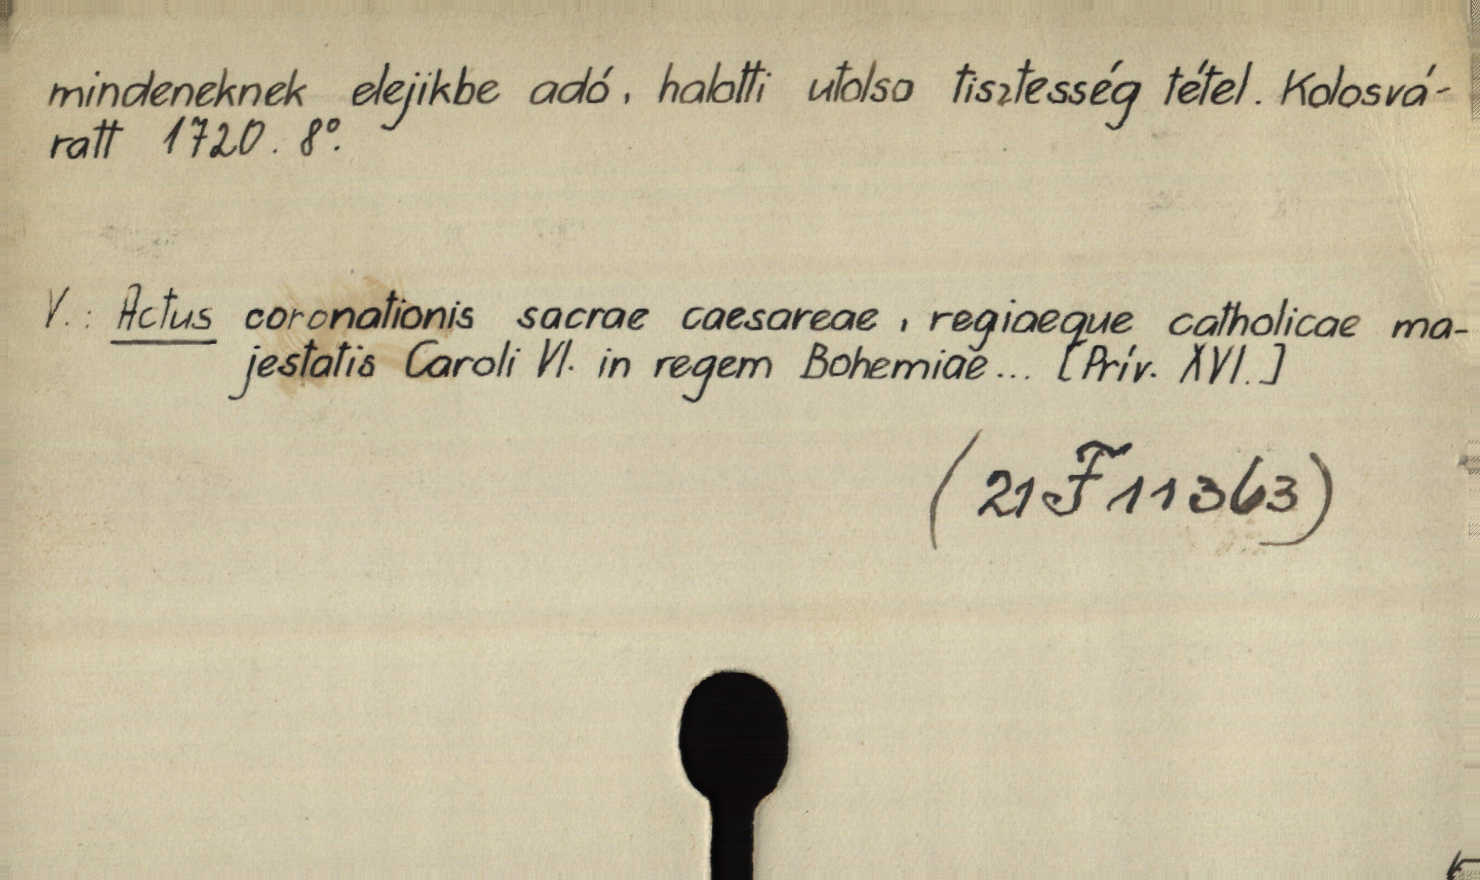 mindeneknek elejikbe adó, halotti utolso tisztesség tétel. Kolosvá-
ratt 1720. 8°.
V.: Actus coronationis sacrae caesareae, regiaeque catholicae ma-
jestatis Caroli VI. in regem Bohemiae... [Priv. XVI.]
(21 F 11363)